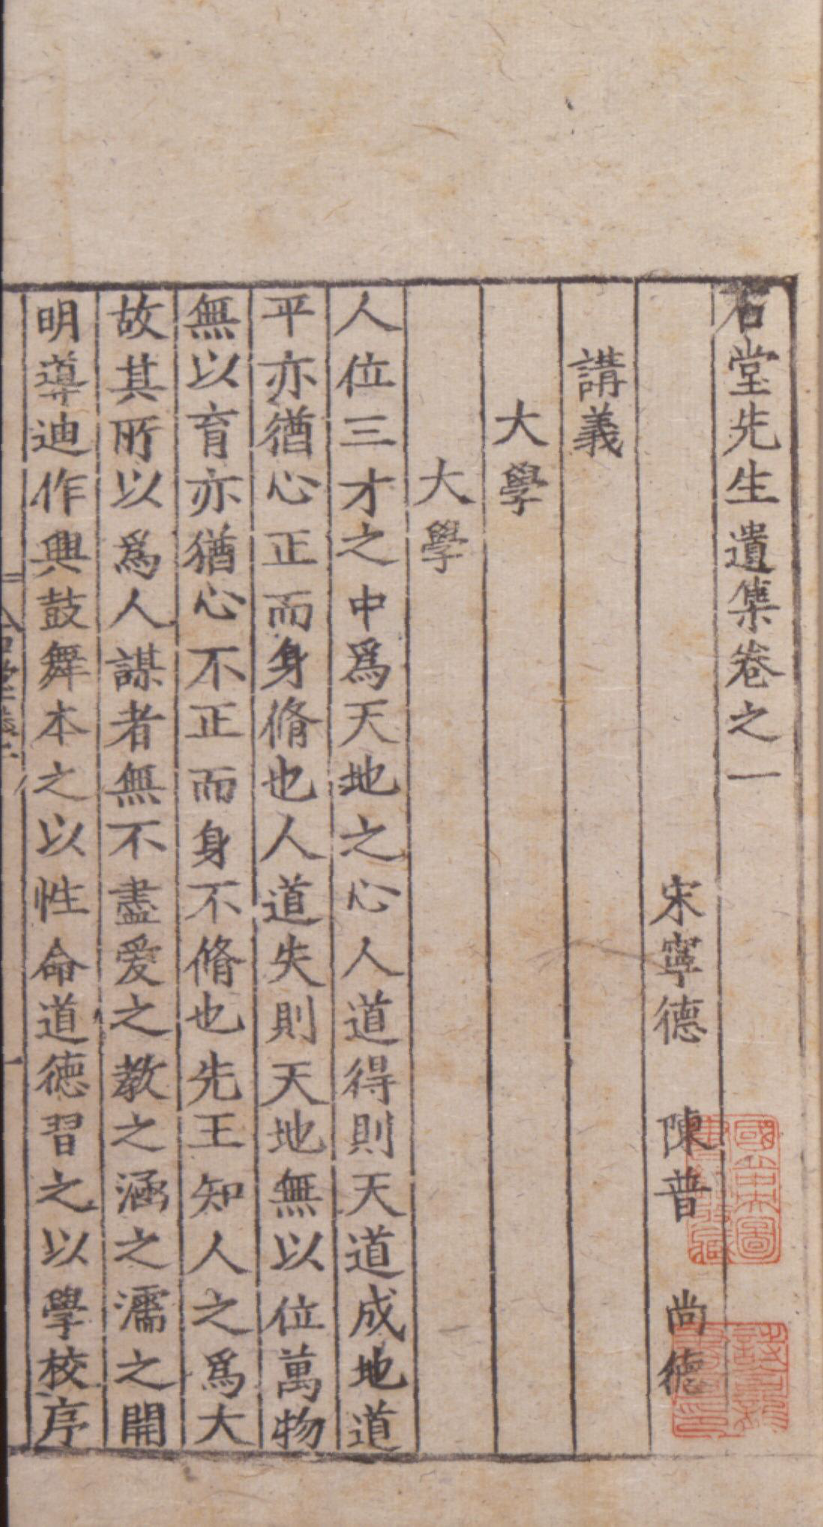 石堂先生遺集卷之一
宋寧德 陳普 尚德
講義
大學
大學
人位三才之中爲天地之心人道得則天道成地道
平亦猶心正而身脩也人道失則天地無以位萬物
無以育亦猶心不正而身不脩也先王知人之爲大
故其所以爲人謀者無不盡愛之教之涵之濡之開
明導迪作興鼓舞本之以性命道德習之以學校序